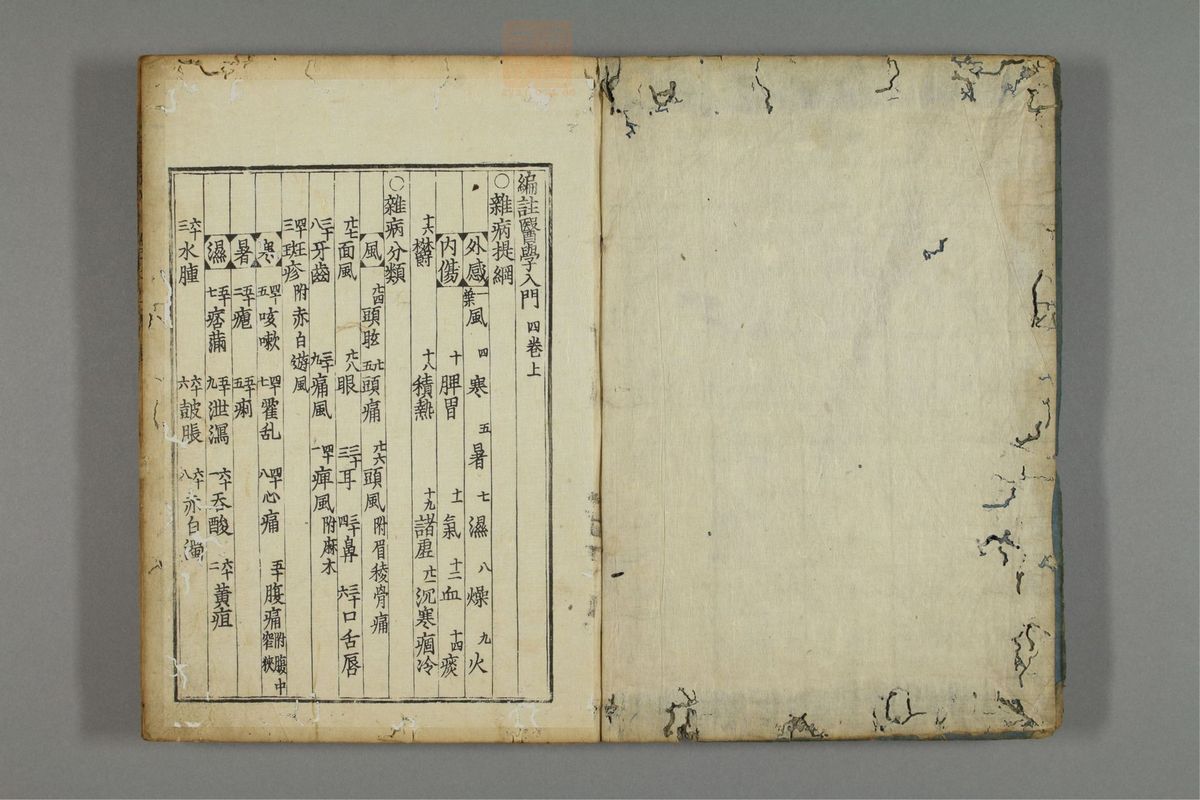 編註醫學入門 四卷上
○雜病提綱
外感 一葉風 四寒 五暑 七濕 八燥 九火
內傷 十脾胃 十一氣 十二血 十四痰
十六欝 十八積熱 十九諸虛 廿一沉寒痼冷
○雜病分類
風 廿四頭眩 廿五頭痛 廿六頭風附眉稜骨痛
廿七面風 廿八眼 三十三耳 三十四鼻 三十六口舌唇
三十八牙齒 三十九痛風 四十一痺風附麻木
四十三斑疹附赤白遊風
寒 四十五咳嗽 四十七霍乱 四十八心痛 五十腹痛附腹中窄狹
暑 五十二瘧 五十五痢
濕 五十七痞滿 五十九泄瀉 六十一吞酸 六十二黃疸
六十三水腫 六十六皷脹 六十八赤白濁